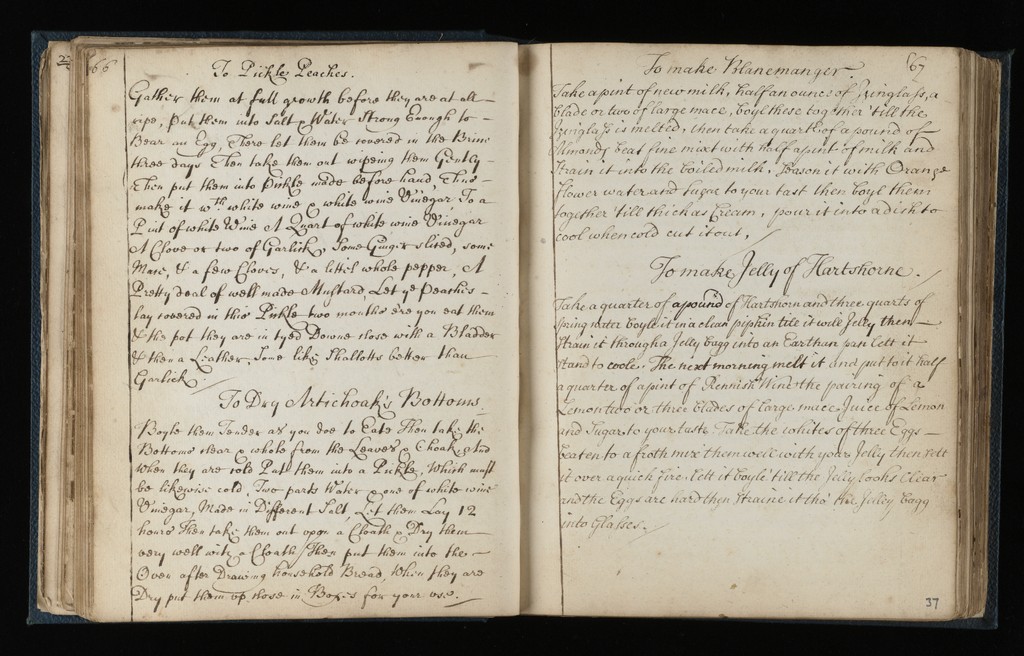 66
To Pickle Peaches.
Gather them at full growth before they are at all
ripe, Put them into Salt & Water Strong Enough to
Bear an Egg, There let them be covered in the Brine
three days Then take them out wipeing them Gently
Then put them into Pickle made before hand, Thus
make it wth white wine & white wine Vinegar, To a
Pint of white Wine A Quart of white wine Vinegar
A Clove or two of Garlick, Some Ginger slited, some
Mace, & a few Cloves, & a littel whole pepper, A
Pretty deal of well made Mustard Let ye Peaches
lay covered in this Pickle two months ere you eat them
& the pot they are in tyed Downe close with a Bladder
& then a Leather. Some like Shallotts better than
Garlick
To Dry Artichoak's Bottoms
Boyle them Tender as you doe to Eate Then take the
Bottoms clear & whole from the Leaves & Choak, And
when they are cold Put them into a Pickle, Which must
be likewise cold, Two parts Water & one of white wine
Vinegar, Made in Different Salt, Let them Lay 12
hours Then take them out upon a Cloath & Dry them
very well with a Cloath / Then put them into the
Oven after Drawing household Bread, When they are
Dry put them up close in Boxes for your use.
67
To make Blanemanger.
Take a pint of new milk, half an ounce of Jsinglass, a
blade or two of large mace, boyl these together 'till the
Jsinglass is melted, then take a quarter of a pound of
Almonds beat fine mixt with half a pint of milk and
strain it into the boiled milk, season it with Orange
flower water and sugar to your tast then boyl them
together 'till thick as Cream, pour it into a dish to
cool when cold cut it out,
To make Jelly of Hartshorne.
Take a quarter of a pound of Hartshorn and three quarts of
spring water boyle it in a clean pipkin till it will Jelly then
strain it through a Jelly bagg into an Earthen pan lett it
stand to coole. The next morning melt it and put to it half
a quarter of a pint of Rennish Wine the pairing of a
Lemon two or three blades of large mace Juice of Lemon
and Sugar to your taste. Take the whites of three Eggs
beaten to a froth mix them well with your Jelly then sett
it over a quick fire, lett it boyle 'till the Jelly looks Clear
and the Eggs are hard then straine it tho' the Jelley bagg
into Glasses.
37